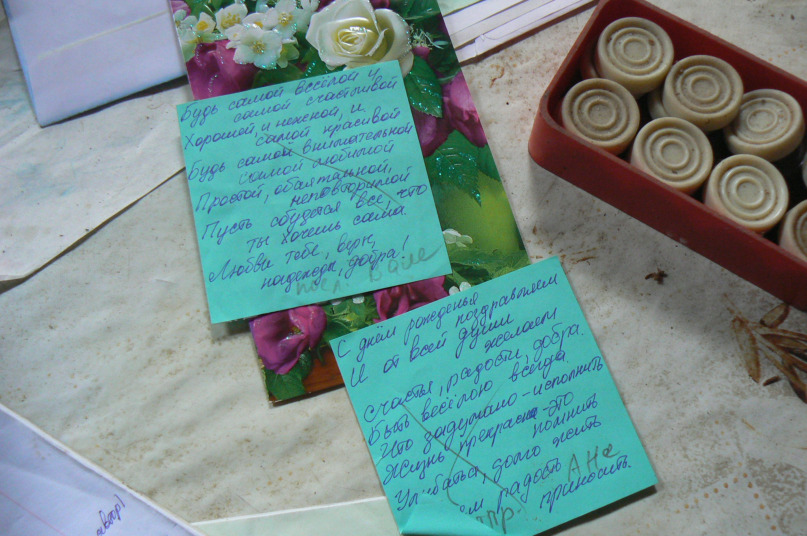 Будь самой весёлой и
самой счастливой
Хорошей, и нежной, и
самой красивой
Будь самой внимательной
самой любимой
Простой, обаятельной,
неповторимой
Пусть сбудется все, что
ты хочешь сама
Любви тебе, веры,
надежды, добра!
посл. Вале
С днём рожденья
И от всей поздравляем
души
желаем
счастья, радости, добра.
Быть весёлою всегда
Что задумано - исполнить
Жизнь прекрасна - это
помнить
Улыбаться, долго жить
Ане
радость
приносить.